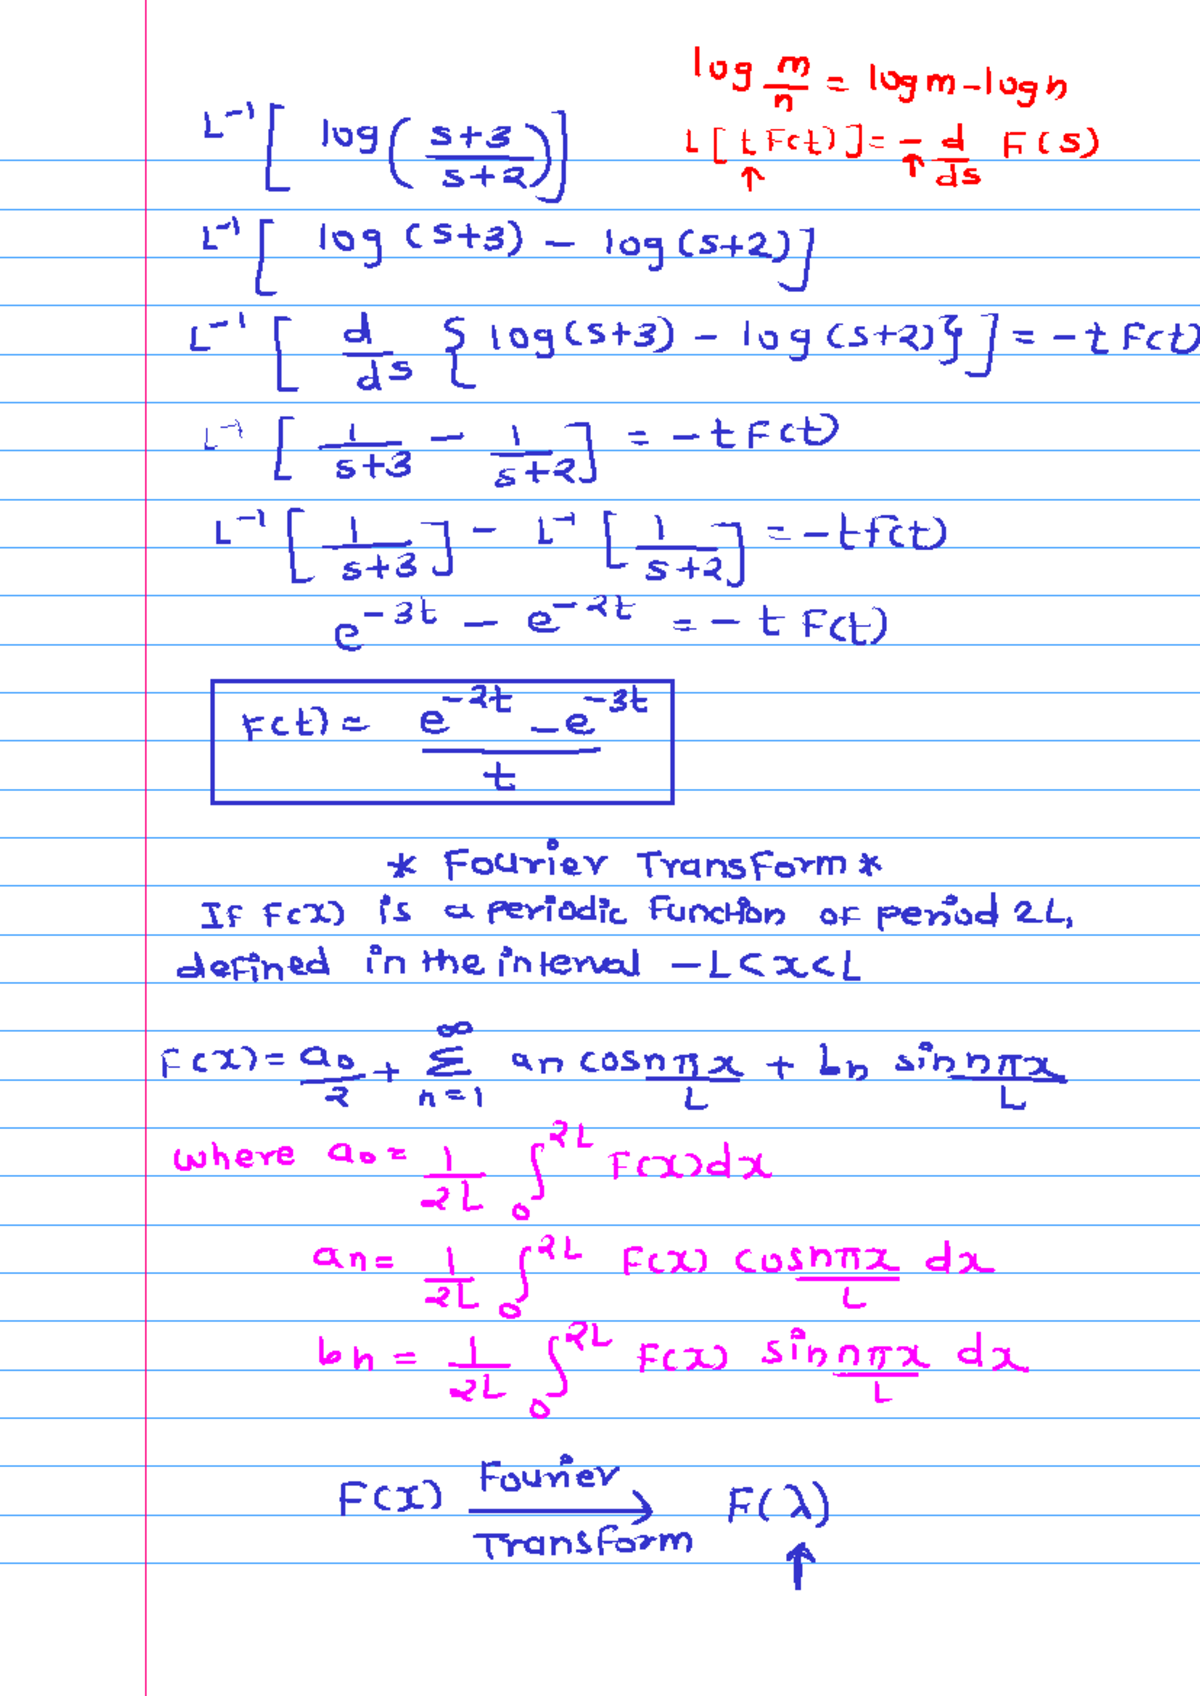 log m/n = logm - logn
L[t F(t)] = - d/ds F(s)
↑ ↑
L⁻¹[ log( (s+3)/(s+2) ) ]
L⁻¹[ log (s+3) - log (s+2) ]
L⁻¹[ d/ds { log(s+3) - log (s+2) } ] = - t F(t)
L⁻¹[ 1/(s+3) - 1/(s+2) ] = - t F(t)
L⁻¹[ 1/(s+3) ] - L⁻¹[ 1/(s+2) ] = - t f(t)
e^(-3t) - e^(-2t) = - t F(t)
F(t) = (e^(-2t) - e^(-3t))/t
* Fourier Transform *
If F(x) is a periodic function of period 2L,
defined in the interval -L<x<L
F(x) = a₀/2 + Σ_{n=1}^{∞} an cos nπx/L + bn sin nπx/L
where a₀ = 1/2L ∫₀^{2L} F(x)dx
an = 1/2L ∫₀^{2L} F(x) cos nπx/L dx
bn = 1/2L ∫₀^{2L} F(x) sin nπx/L dx
Fourier
F(x) → F(λ)
Transform ↑